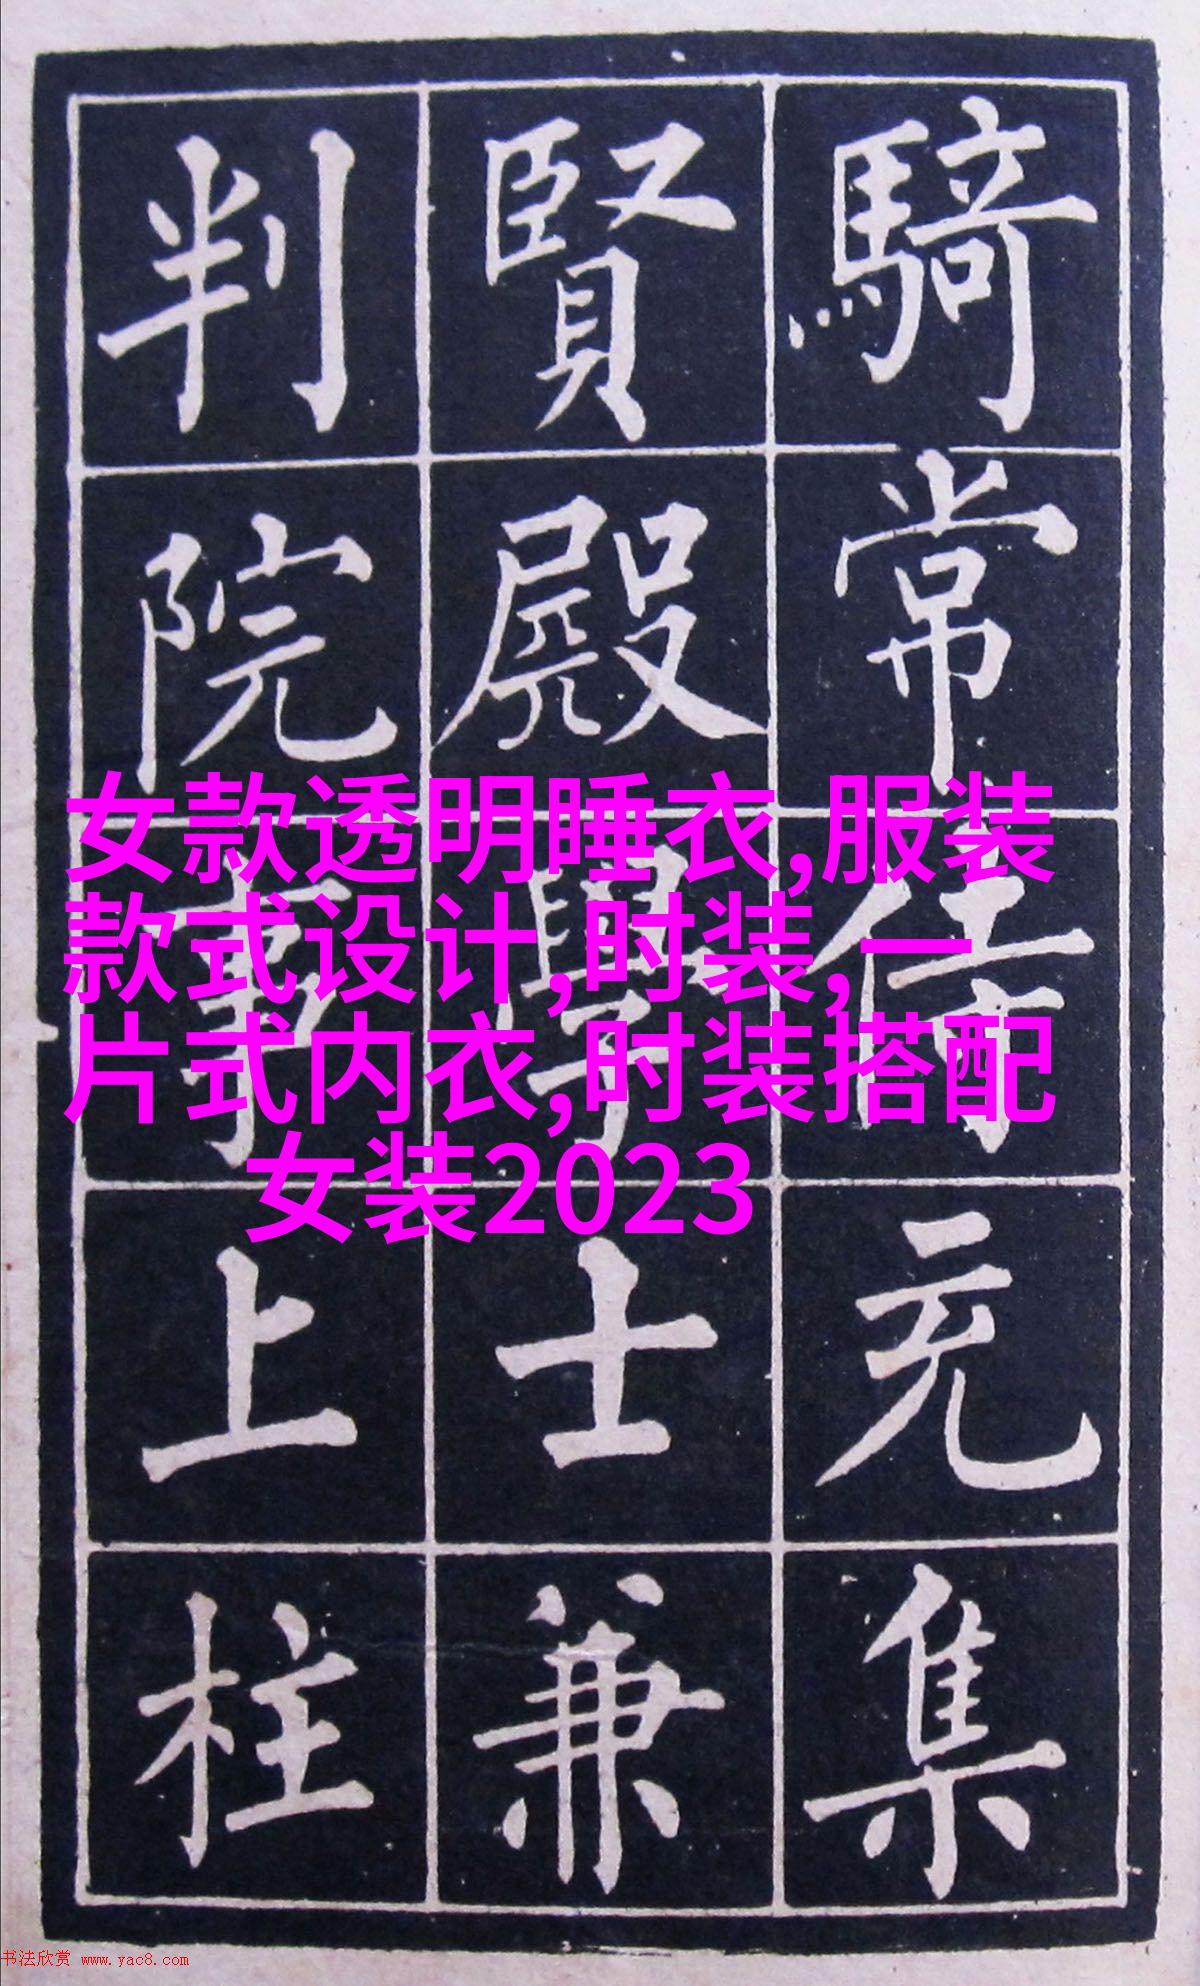 騎常侍充集
賢殿學士兼
判院事上柱
女款透明睡衣,服装
款式设计,时装,一
片式内衣,时装搭配
女装2023
书法欣赏 www.yac8.com